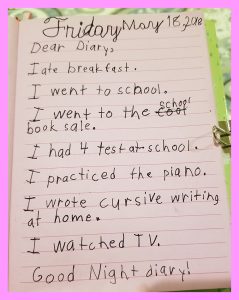 Friday May 18, 2018
Dear Diary,
I ate breakfast.
I went to school.
school
I went to the cool
book sale.
I had 4 test at school.
I practiced the piano.
I wrote cursive writing
at home.
I watched T.V.
Good Night diary!